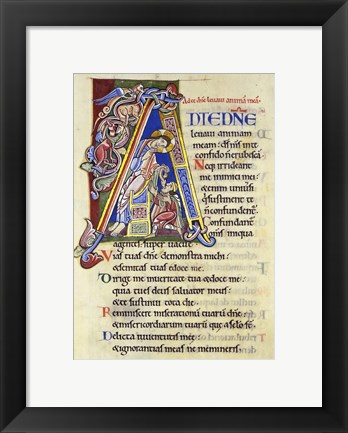 Ad te dn̄e levavi animā meā.
A DTEDN̄E
levavi animam
meam: ds̄ m̄s in te
confido n̄ erubescā
Neq; irrideant
me inimici mei
&enim univsi
q̄ sustinent te n̄
confundent
Confundant
om̄s iniqua
agentes super vacue
Vias tuas dn̄e demonstra michi
&semitas tuas edoce me.
Dirige me in veritate tua &edoce me:
quia tu es deus salvator meus
&te sustinui tota die.
Reminiscere miserationū tuarū dn̄e
&misericordiarum tuarū que a sēlo st̄.
Delicta iuventutis mee:
&ignorantias meas ne memineris.